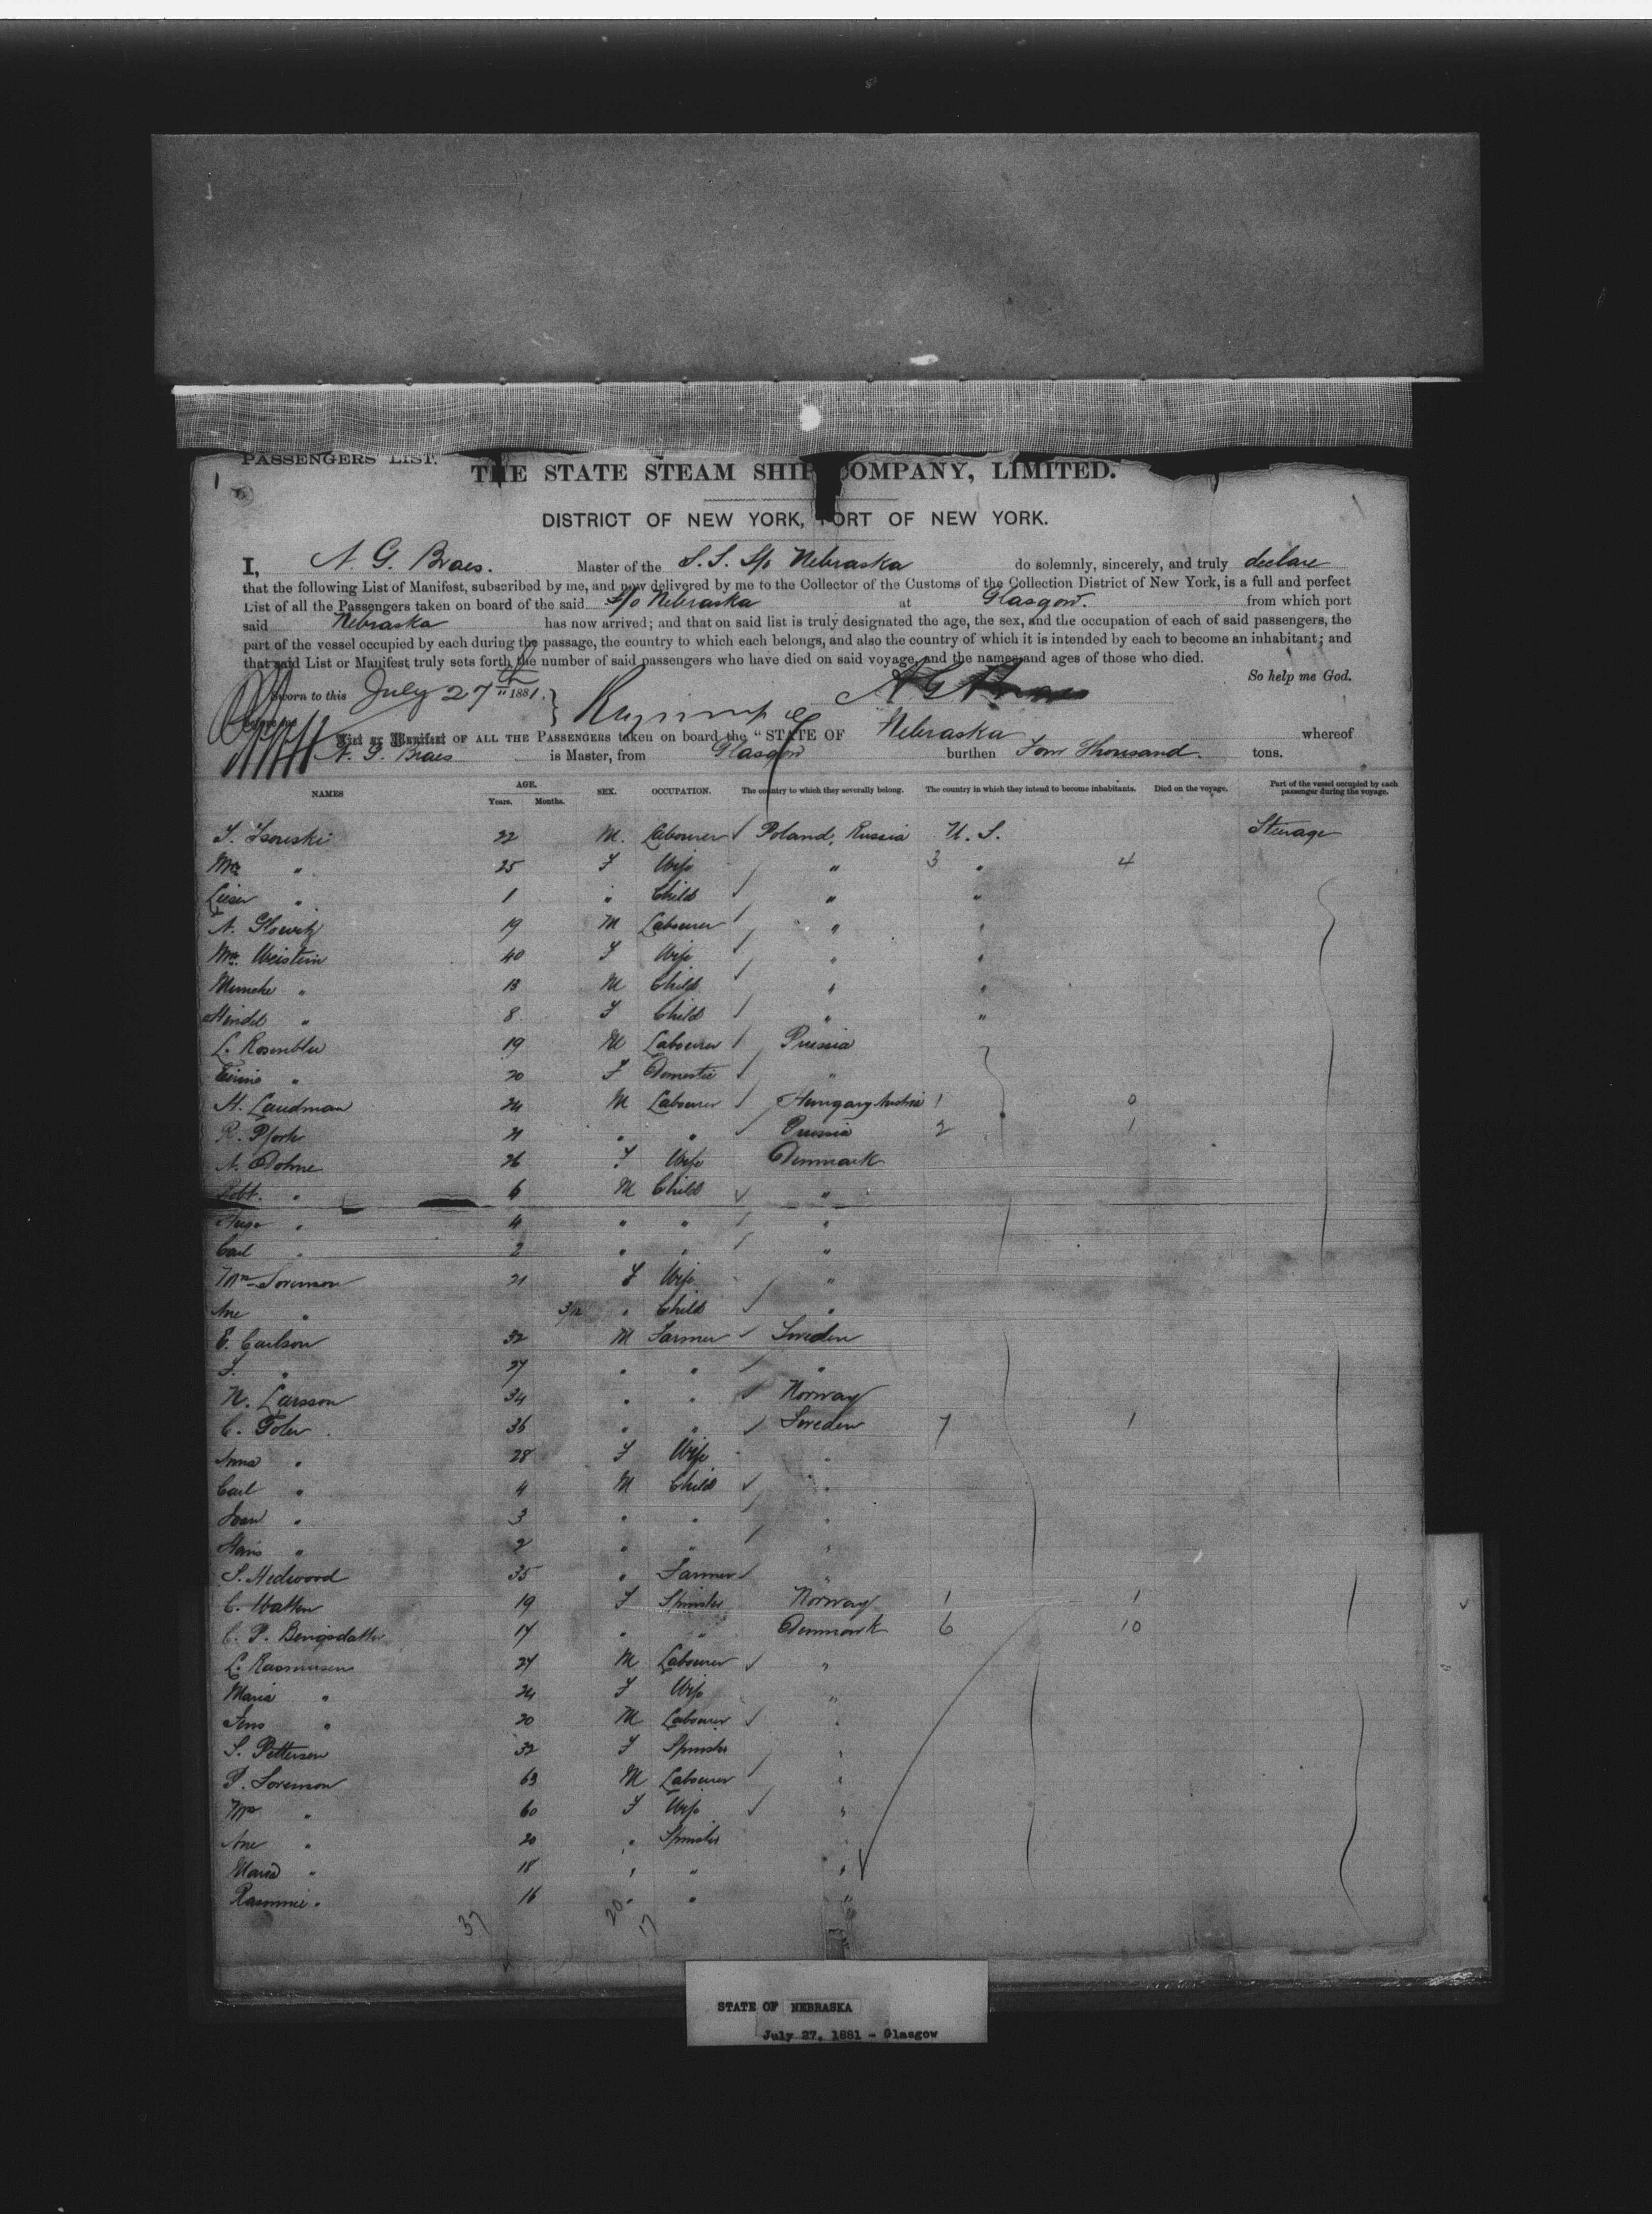 PASSENGERS LIST.
THE STATE STEAM SHIP COMPANY, LIMITED.
DISTRICT OF NEW YORK, PORT OF NEW YORK.
I, A. G. Braes. Master of the S.S. S/o Nebraska do solemnly, sincerely, and truly declare
that the following List of Manifest, subscribed by me, and now delivered by me to the Collector of the Customs of the Collection District of New York, is a full and perfect
List of all the Passengers taken on board of the said S/o Nebraska at Glasgow. from which port
said Nebraska has now arrived; and that on said list is truly designated the age, the sex, and the occupation of each of said passengers, the
part of the vessel occupied by each during the passage, the country to which each belongs, and also the country of which it is intended by each to become an inhabitant; and
that said List or Manifest truly sets forth the number of said passengers who have died on said voyage, and the names and ages of those who died.
So help me God.
Sworn to this July 27th 1881.
List or Manifest OF ALL THE PASSENGERS taken on board the "STATE OF Nebraska whereof
A. G. Braes is Master, from Glasgow burthen Four Thousand. tons.
NAMES AGE. Years. Months. SEX. OCCUPATION. The country to which they severally belong. The country in which they intend to become inhabitants. Died on the voyage. Part of the vessel occupied by each passenger during the voyage.
22 M. Labourer Poland, Russia U. S. Steerage
Mrs " 25 F Wife " 3 " 4
" 1 " Child " "
19 M Labourer " "
Mrs. Weistein 40 F Wife " "
" 13 M Child " "
Hindel " 8 F Child " "
L. 19 M Labourer Prussia
" 20 F Domestic "
H. Landman 24 M Labourer Hungary Austria 1 0
R. 21 " " Prussia 2 1
A. Dohne 26 F Wife Denmark
Robt. " 6 M Child "
Hugo " 4 " " "
Carl " 2 " " "
Mrs Sorenson 21 F Wife "
Ane " 3/12 " Child "
E. Carlson 32 M Farmer Sweden
F. " 27 " " "
N. Larsson 34 " " Norway
C. 36 " " Sweden 7 1
Anna " 28 F Wife "
Carl " 4 M Child "
" 3 " " "
Hans " 2 " " "
S. Hedwood 35 " Farmer "
C. 19 F Spinster Norway 1 1
C. P. 17 " " Denmark 6 10
L. Rasmusen 27 M Labourer "
Maria " 24 F Wife "
Jens " 20 M Labourer "
S. Pettersen 32 F Spinster "
P. Sorenson 63 M Labourer "
Mrs " 60 F Wife "
Ane " 20 " Spinster "
Maria " 18 " " "
" 16 " " "
37 20 17
STATE OF NEBRASKA
July 27, 1881 - Glasgow